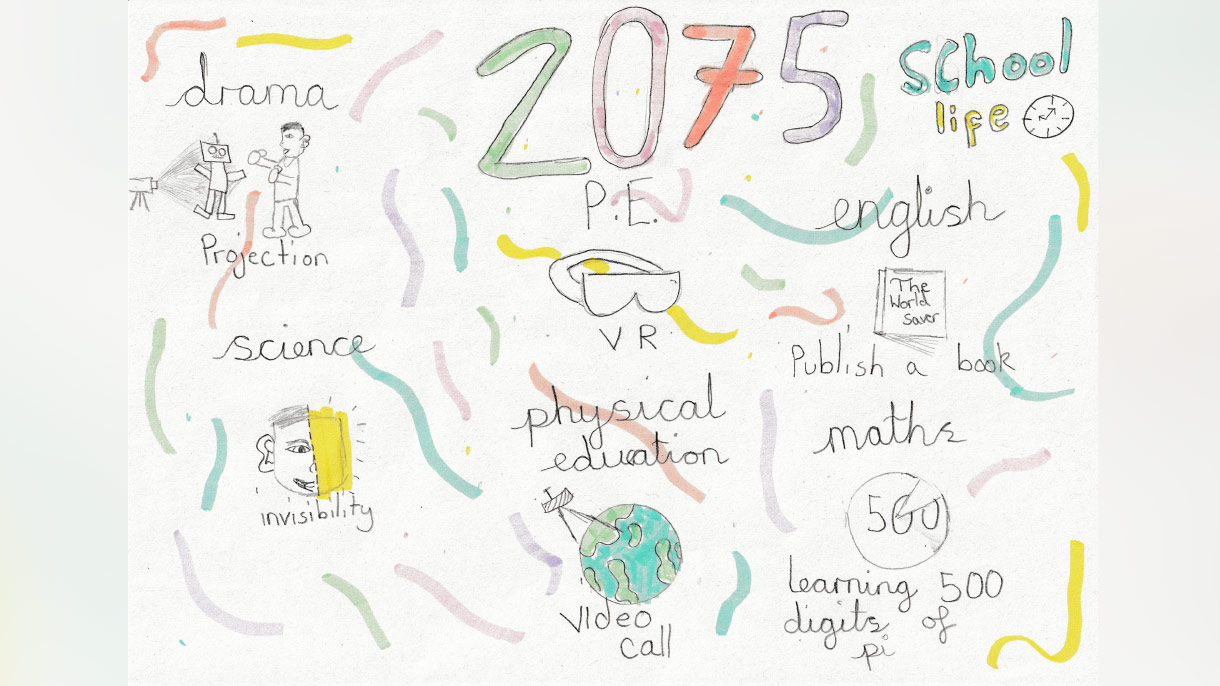 2075
school
life
drama
Projection
P.E.
VR
english
The
World
Saver
Publish a book
science
invisibility
physical
education
video
call
maths
500
learning 500
digits of
pi